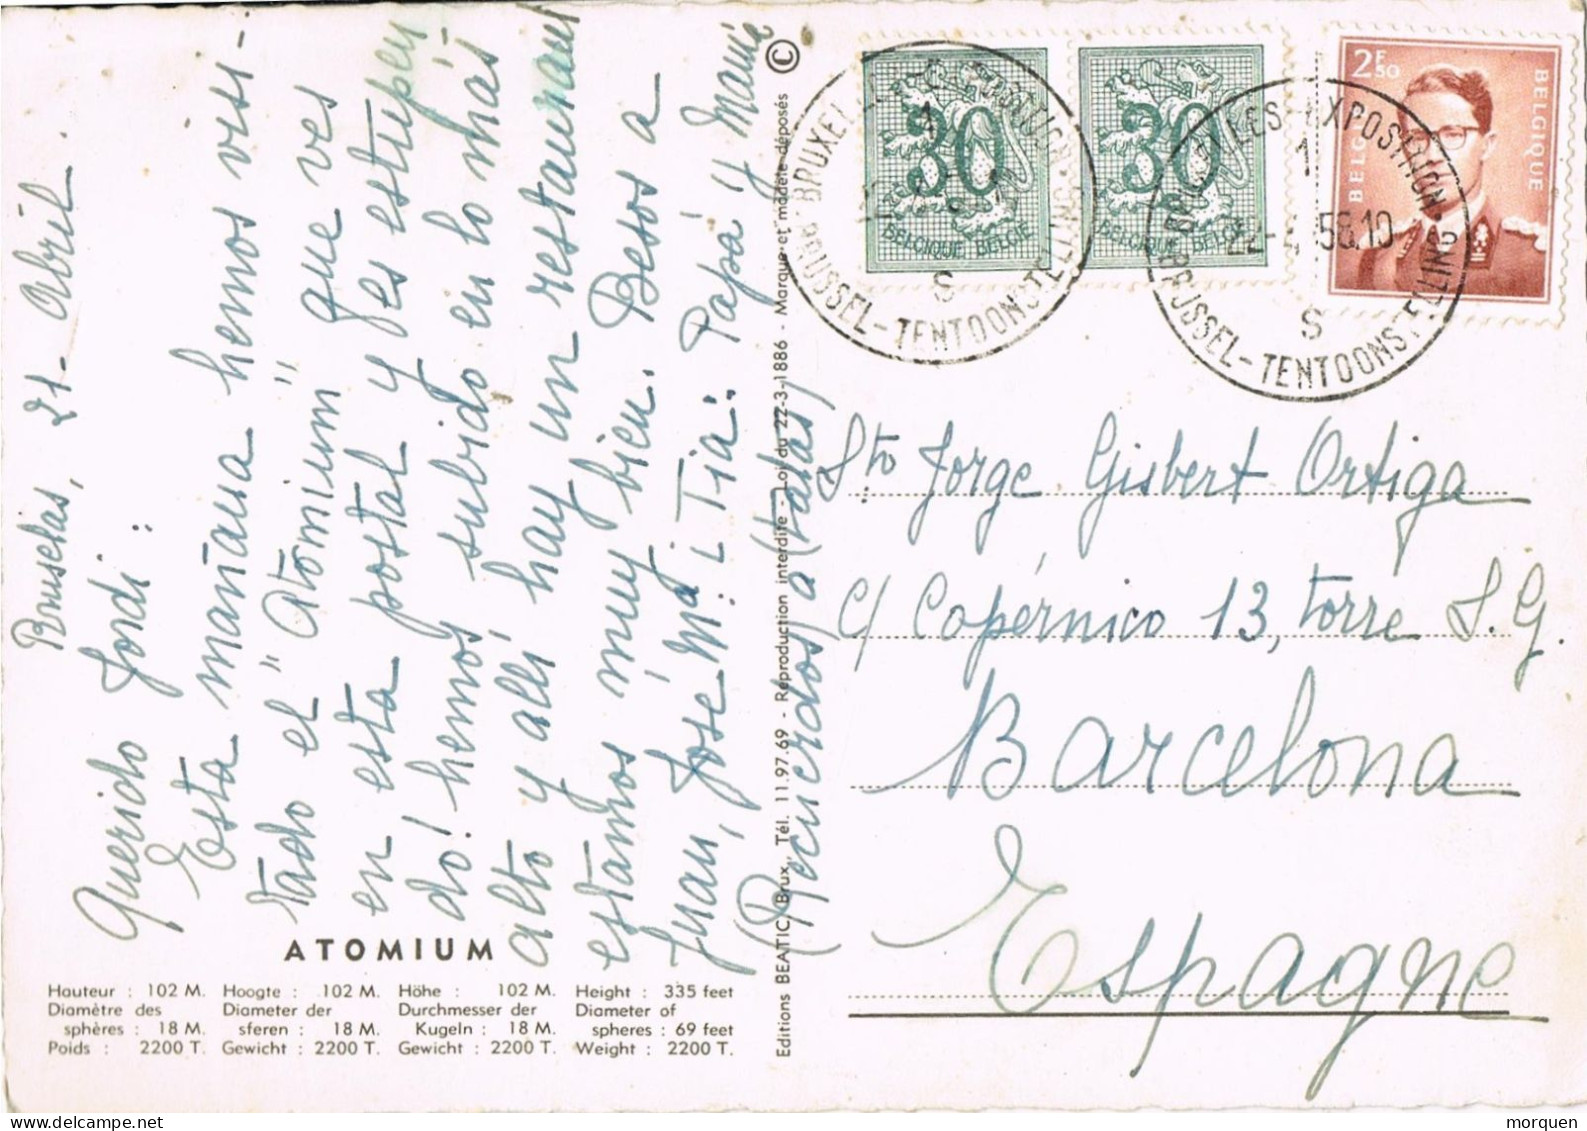 Bruselas, 21-Abril.
Querido Jordi:
Esta mañana hemos visi-
tado el "Atomium" que ves
en esta postal y es estupen
do! hemos subido en lo más
alto y allí hay un restaurant
estamos muy bien. Besos a
Juan, José Mª i Tia. Papá y Mamá
(Recuerdos a tatas)
ATOMIUM
Hauteur : 102 M.
Diamètre des
sphères : 18 M.
Poids : 2200 T.
Hoogte : 102 M.
Diameter der
sferen : 18 M.
Gewicht : 2200 T.
Höhe : 102 M.
Durchmesser der
Kugeln : 18 M.
Gewicht : 2200 T.
Height : 335 feet
Diameter of
spheres : 69 feet
Weight : 2200 T.
Editions BEATIC, Brux, Tél. 11.97.69 - Reproduction interdite - Loi du 22-3-1886 - Marque et modèle déposés ©
30
BELGIQUE BELGIË
30
BELGIQUE BELGIË
2F50
BELGIË
BELGIQUE
BRUXELLES-EXPOSITION
S
BRUSSEL-TENTOONSTELLING
BRUXELLES-EXPOSITION
1
22-4-58.10
S
BRUSSEL-TENTOONSTELLING
Sto Jorge Gisbert Ortiga
c/ Copérnico 13, torre S.G.
Barcelona
Espagne
morquen